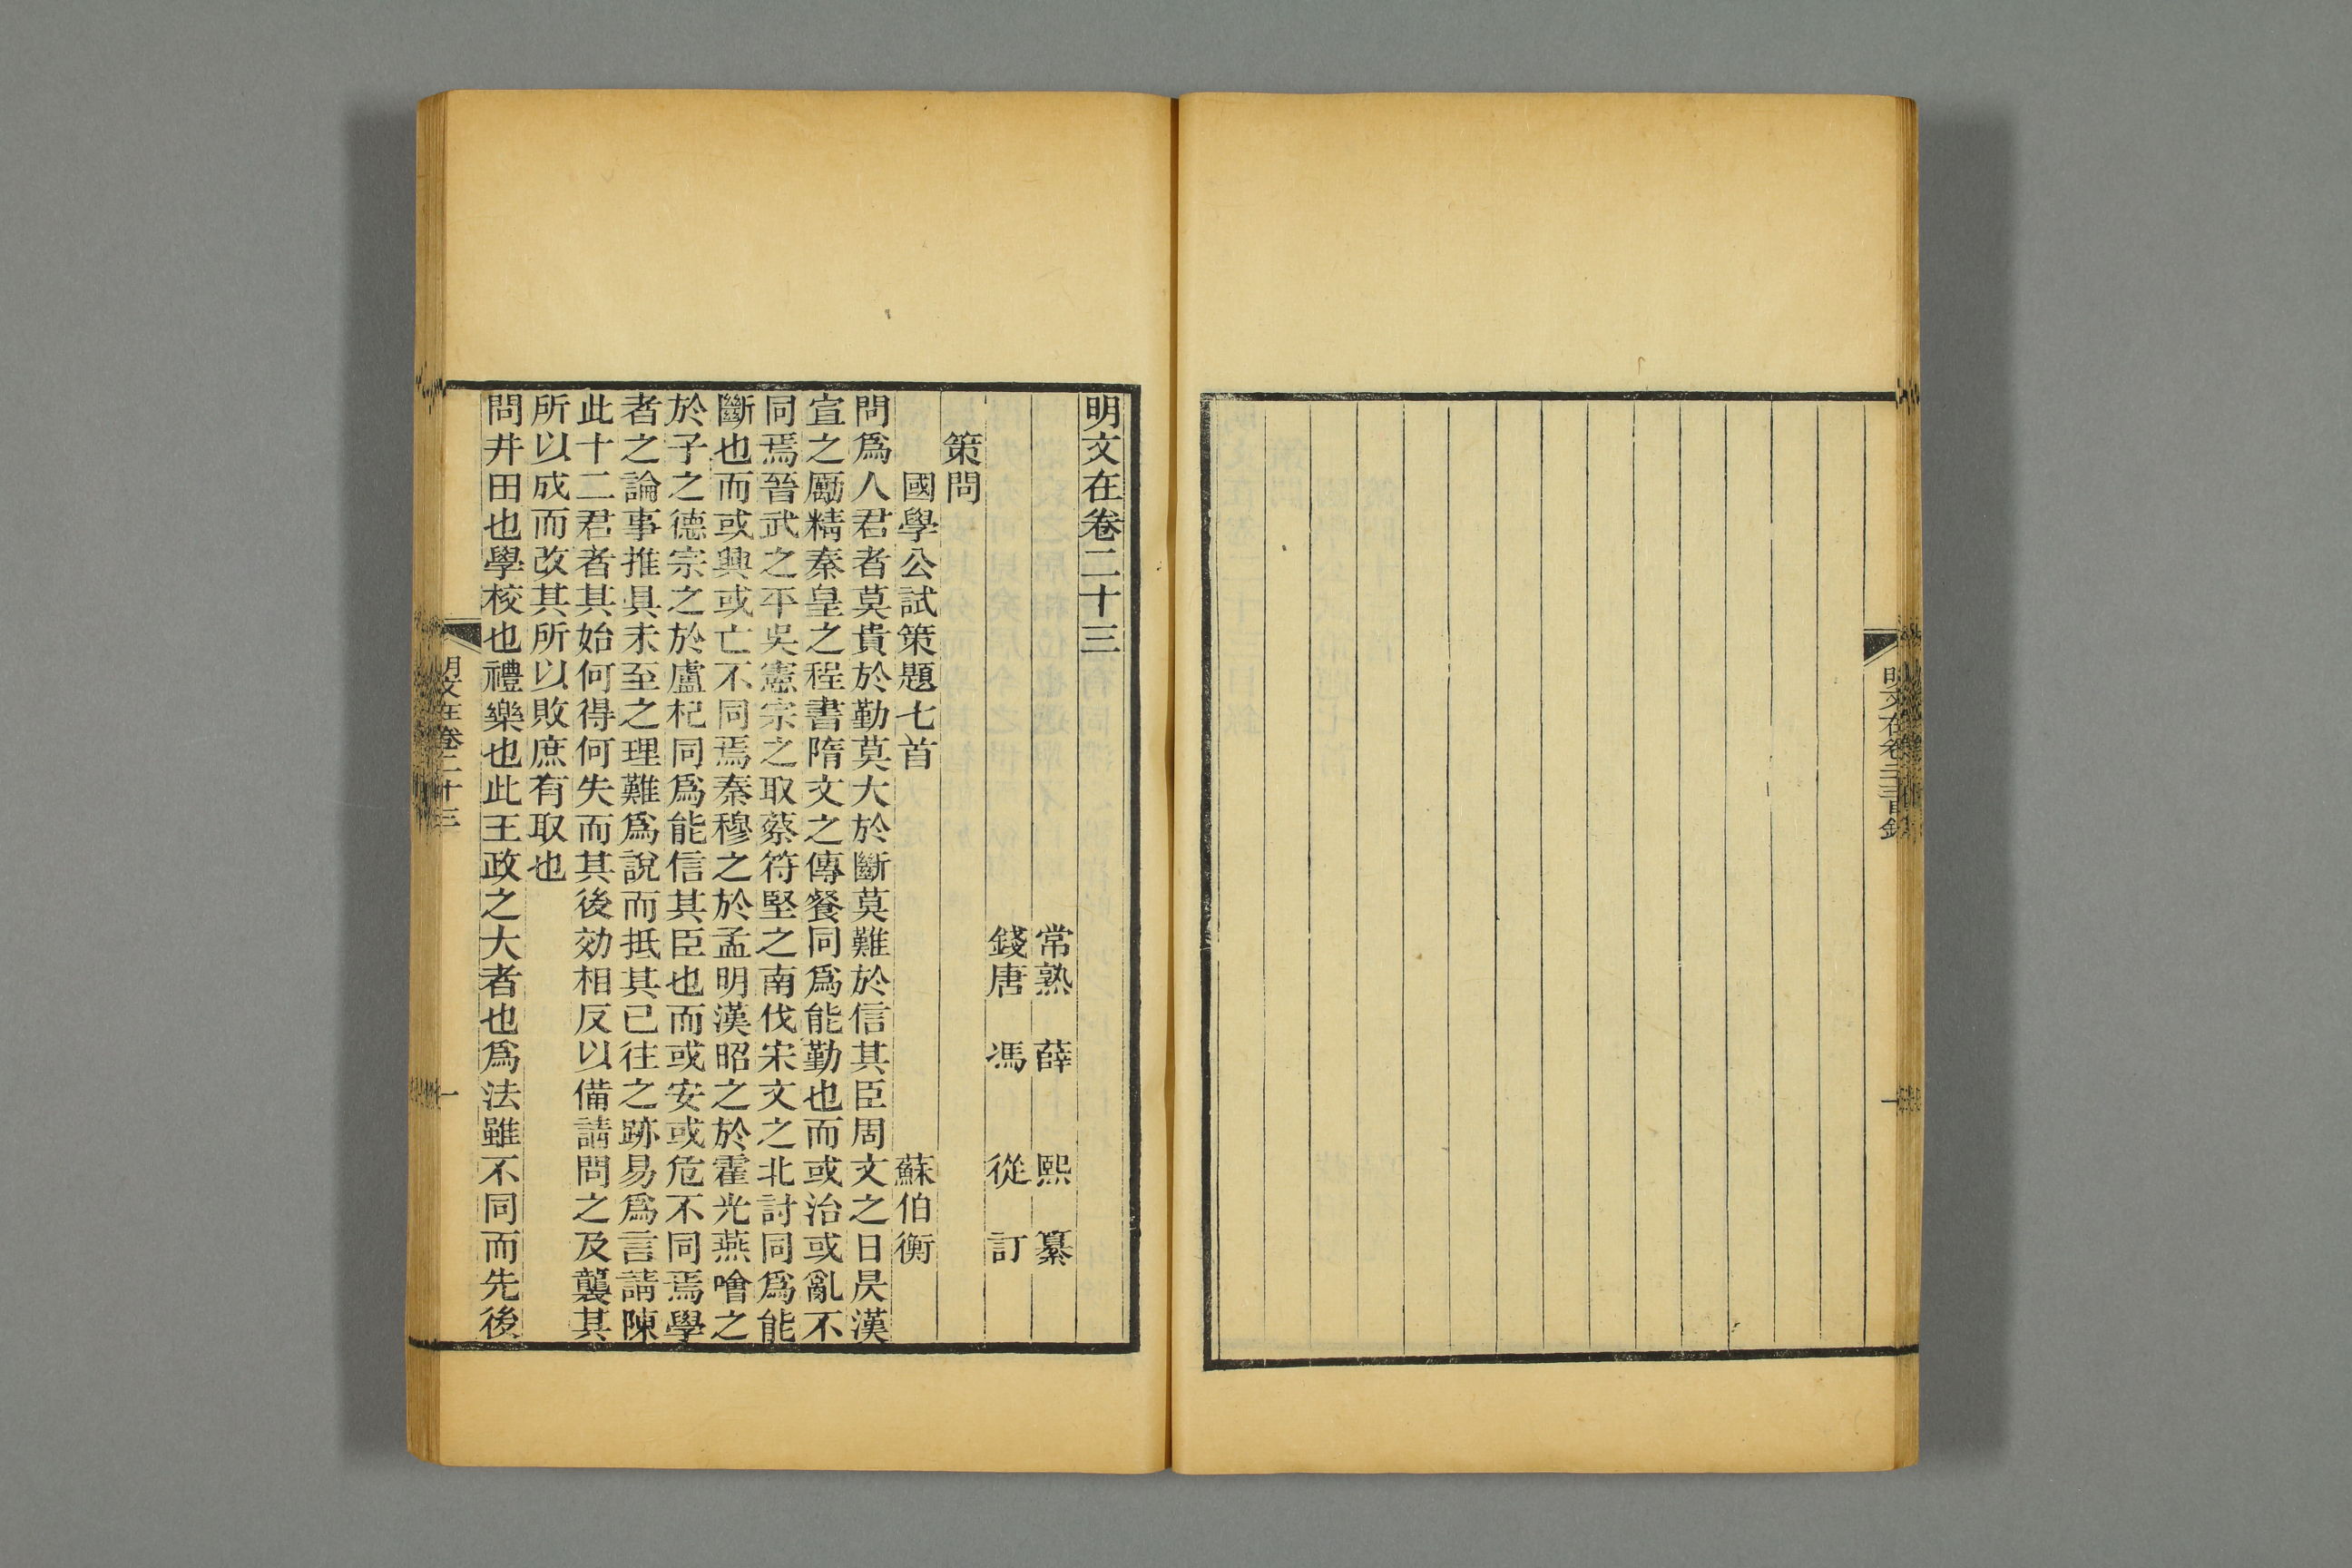 明文在卷二十三目錄
一
明文在卷二十三
常熟 薛 熙 纂
錢唐 馮 從 訂
策問
國學公試策題七首 蘇伯衡
問爲人君者莫貴於勤莫大於斷莫難於信其臣周文之日昃漢
宣之厲精秦皇之程書隋文之傳餐同爲能勤也而或治或亂不
同焉晉武之平吳憲宗之取蔡符堅之南伐宋文之北討同爲能
斷也而或興或亡不同焉秦穆之於孟明漢昭之於霍光燕噲之
於子之德宗之於盧杞同爲能信其臣也而或安或危不同焉學
者之論事推具未至之理難爲說而抵其已往之跡易爲言請陳
此十二君者其始何得何失而其後効相反以備請問之及襲其
所以成而改其所以敗庶有取也
問井田也學校也禮樂也此王政之大者也爲法雖不同而先後
明文在卷二十三
一